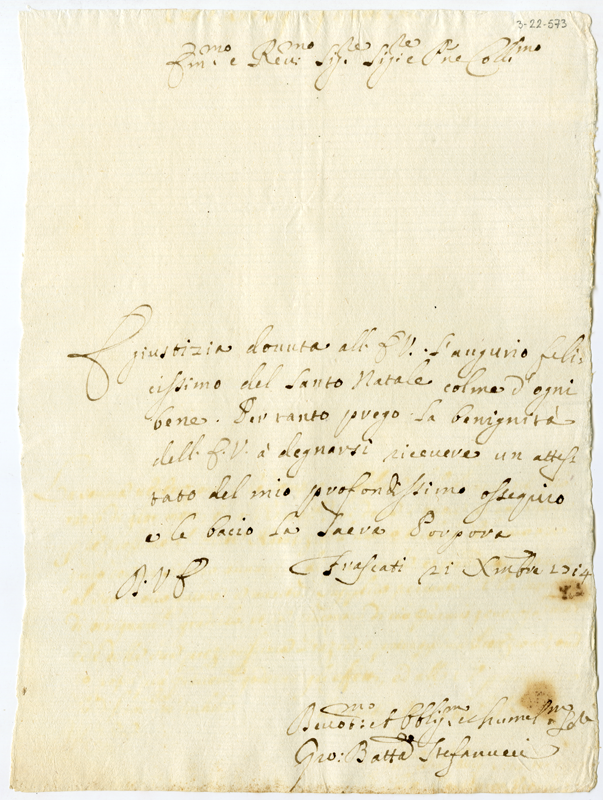 3-22-573
Em.mo e Reu.mo Sig.re Sig.re e Pne Coll.mo
E giustizia douuta all' E.V. l'augurio feli-
cissimo del Santo Natale colmo d'ogni
bene. Per tanto prego la benignità
dell' E.V. à degnarsi riceuere un attes-
tato del mio profondissimo ossequio
e le bacio la Sacra Porpora
D.V.E. Frascati 21 Xmbre 1714
Deuot.mo et Obblig.mo
Gio: Batta Stefanucci